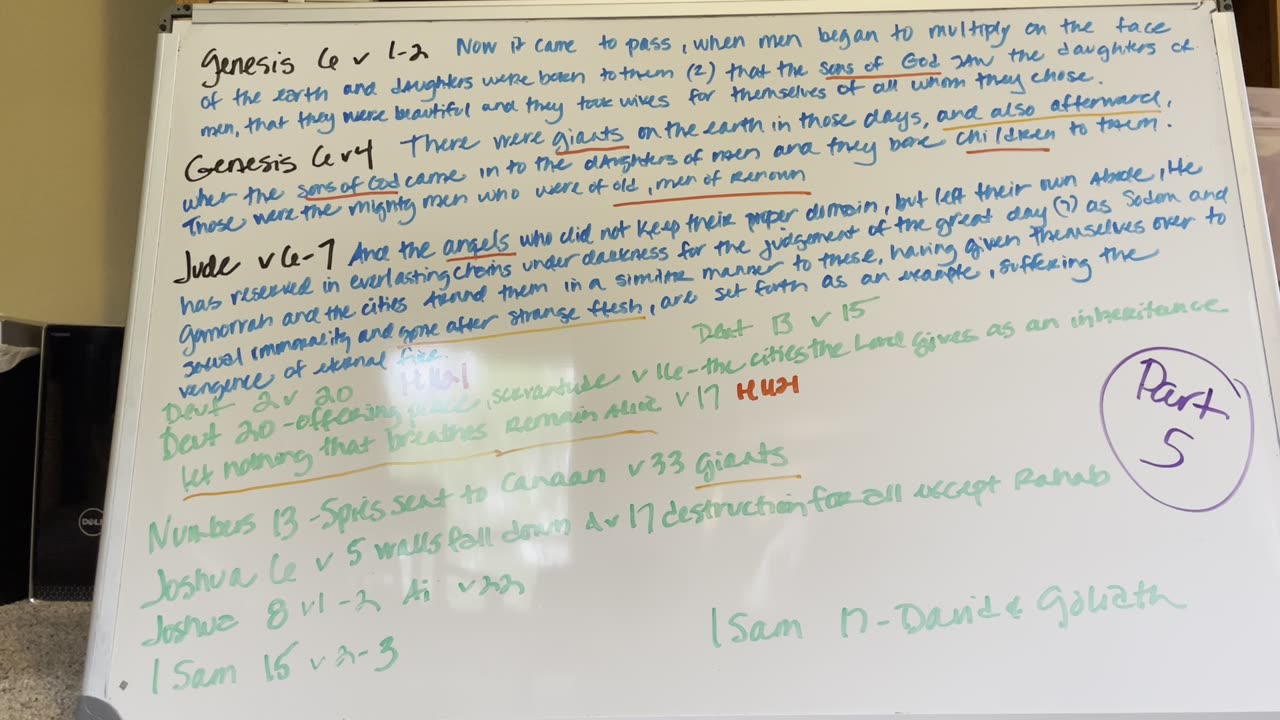 Genesis 6 v 1-2 Now it came to pass, when men began to multiply on the face
of the earth and daughters were born to them (2) that the sons of God saw the daughters of
men, that they were beautiful and they took wives for themselves of all whom they chose.
Genesis 6 v 4 There were giants on the earth in those days, and also afterward,
when the sons of God came in to the daughters of men and they bore children to them.
Those were the mighty men who were of old, men of renown
Jude v 6-7 And the angels who did not keep their proper domain, but left their own Abode, He
has reserved in everlasting chains under darkness for the judgement of the great day (7) as Sodom and
Gomorrah and the cities around them in a similar manner to these, having given themselves over to
sexual immorality and gone after strange flesh, are set forth as an example, suffering the
vengence of eternal fire.
Deut 13 v 15
Deut 2 v 20
Deut 20 - offering peace, servantude v 16 - the cities the Lord gives as an inheritance
let nothing that breathes remain alive v 17 H421
Numbers 13 - Spies sent to Canaan v 33 Giants
Joshua 6 v 5 walls fall down v 17 destruction for all except Rahab
Joshua 8 v 1-2 Ai v 22
1 Sam 15 v 2-3
1 Sam 17 - David & Goliath
Part
5
DELL